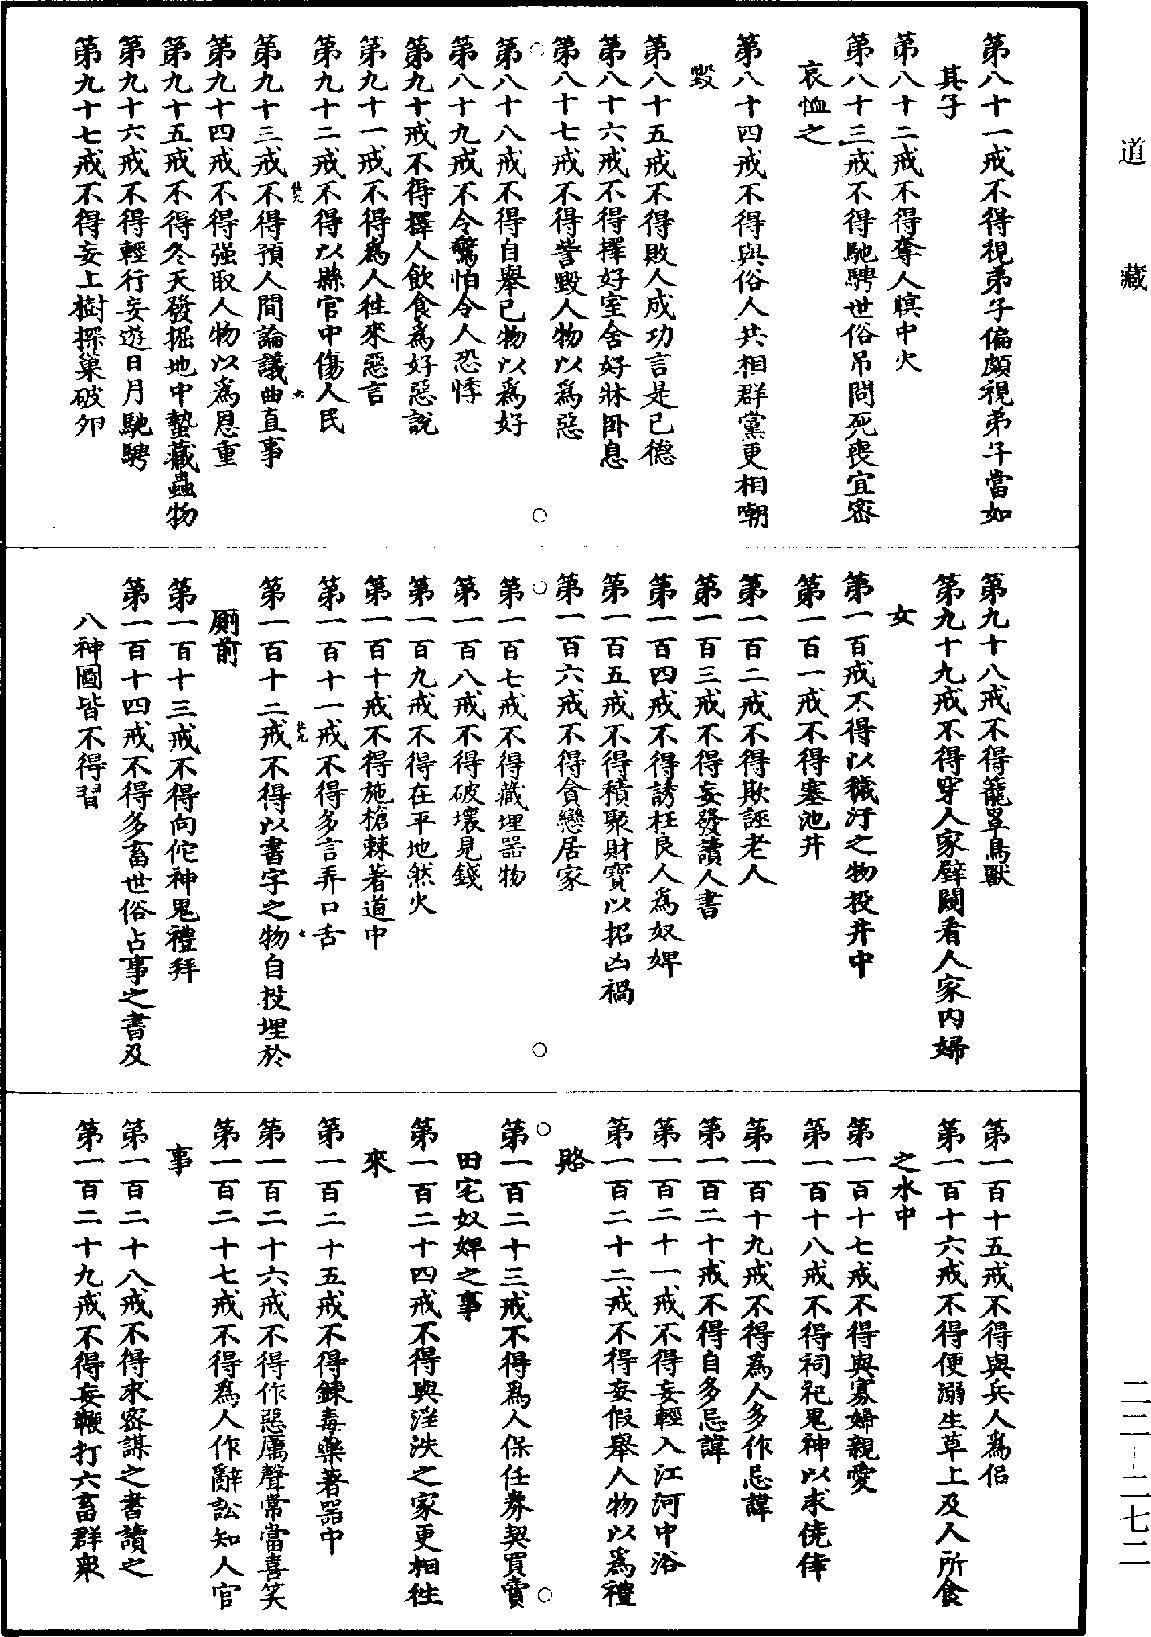 道藏
第八十一戒不得視弟子偏頗視弟子當如
其子
第八十二戒不得奪人暝中火
第八十三戒不得馳騁世俗吊問死喪宜密
哀恤之
第八十四戒不得與俗人共相群黨更相嘲
毀
第八十五戒不得敗人成功言是己德
第八十六戒不得擇好室舍好牀卧息
第八十七戒不得訾毀人物以為惡
第八十八戒不得自舉己物以為好
第八十九戒不令驚怕令人恐悸
第九十戒不得擇人飲食為好惡說
第九十一戒不得為人往來惡言
第九十二戒不得以縣官中傷人民
第九十三戒不得預人間論議曲直事
第九十四戒不得强取人物以為恩重
第九十五戒不得冬天發掘地中蟄藏蟲物
第九十六戒不得輕行妄遊日月馳騁
第九十七戒不得妄上樹探巢破卵
第九十八戒不得籠罩鳥獸
第九十九戒不得穿人家壁闚看人家内婦
女
第一百戒不得以穢汙之物投井中
第一百一戒不得塞池井
第一百二戒不得欺誣老人
第一百三戒不得妄發讀人書
第一百四戒不得誘枉良人為奴婢
第一百五戒不得積聚財寶以招凶禍
第一百六戒不得貪戀居家
第一百七戒不得藏埋器物
第一百八戒不得破壞見錢
第一百九戒不得在平地然火
第一百十戒不得施槍棘著道中
第一百十一戒不得多言弄口舌
第一百十二戒不得以書字之物自投埋於
厠前
第一百十三戒不得向佗神鬼禮拜
第一百十四戒不得多畜世俗占事之書及
八神圖皆不得習
第一百十五戒不得與兵人為侣
第一百十六戒不得便溺生草上及人所食
之水中
第一百十七戒不得與寡婦親愛
第一百十八戒不得祠祀鬼神以求僥倖
第一百十九戒不得為人多作忌諱
第一百二十戒不得自多忌諱
第一百二十一戒不得妄輕入江河中浴
第一百二十二戒不得妄假舉人物以為禮
賂
第一百二十三戒不得為人保任券契買賣
田宅奴婢之事
第一百二十四戒不得與淫泆之家更相往
來
第一百二十五戒不得鍊毒藥著器中
第一百二十六戒不得作惡厲聲常當喜笑
第一百二十七戒不得為人作辭訟知人官
事
第一百二十八戒不得求密謀之書讀之
第一百二十九戒不得妄鞭打六畜群衆
二二—二七二